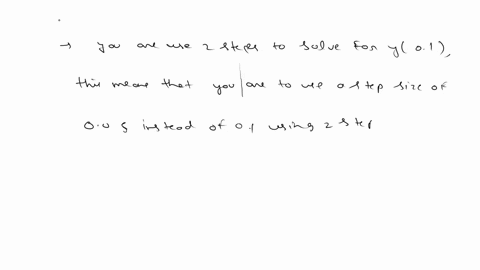 → you are use 2 steps to solve for y(0.1),
this means that you are to use a step size of
0.05 instead of 0.1 using 2 step